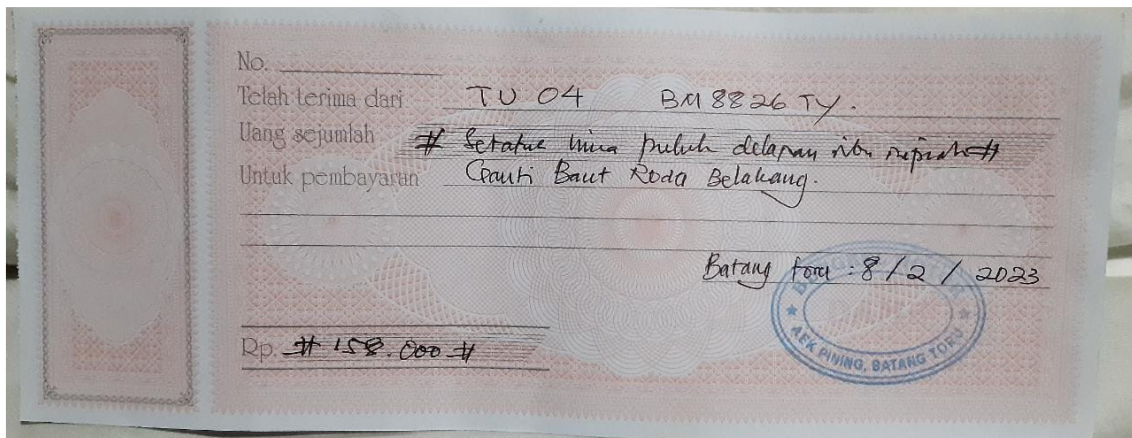 No.
Telah terima dari TU 04 BM 8826 TY.
Uang sejumlah # Seratus lima puluh delapan ribu rupiah #
Untuk pembayaran Ganti Baut Roda Belakang.
Batang toru : 8 / 2 / 2023
AEK PINING, BATANG TORU
Rp. # 158.000 #